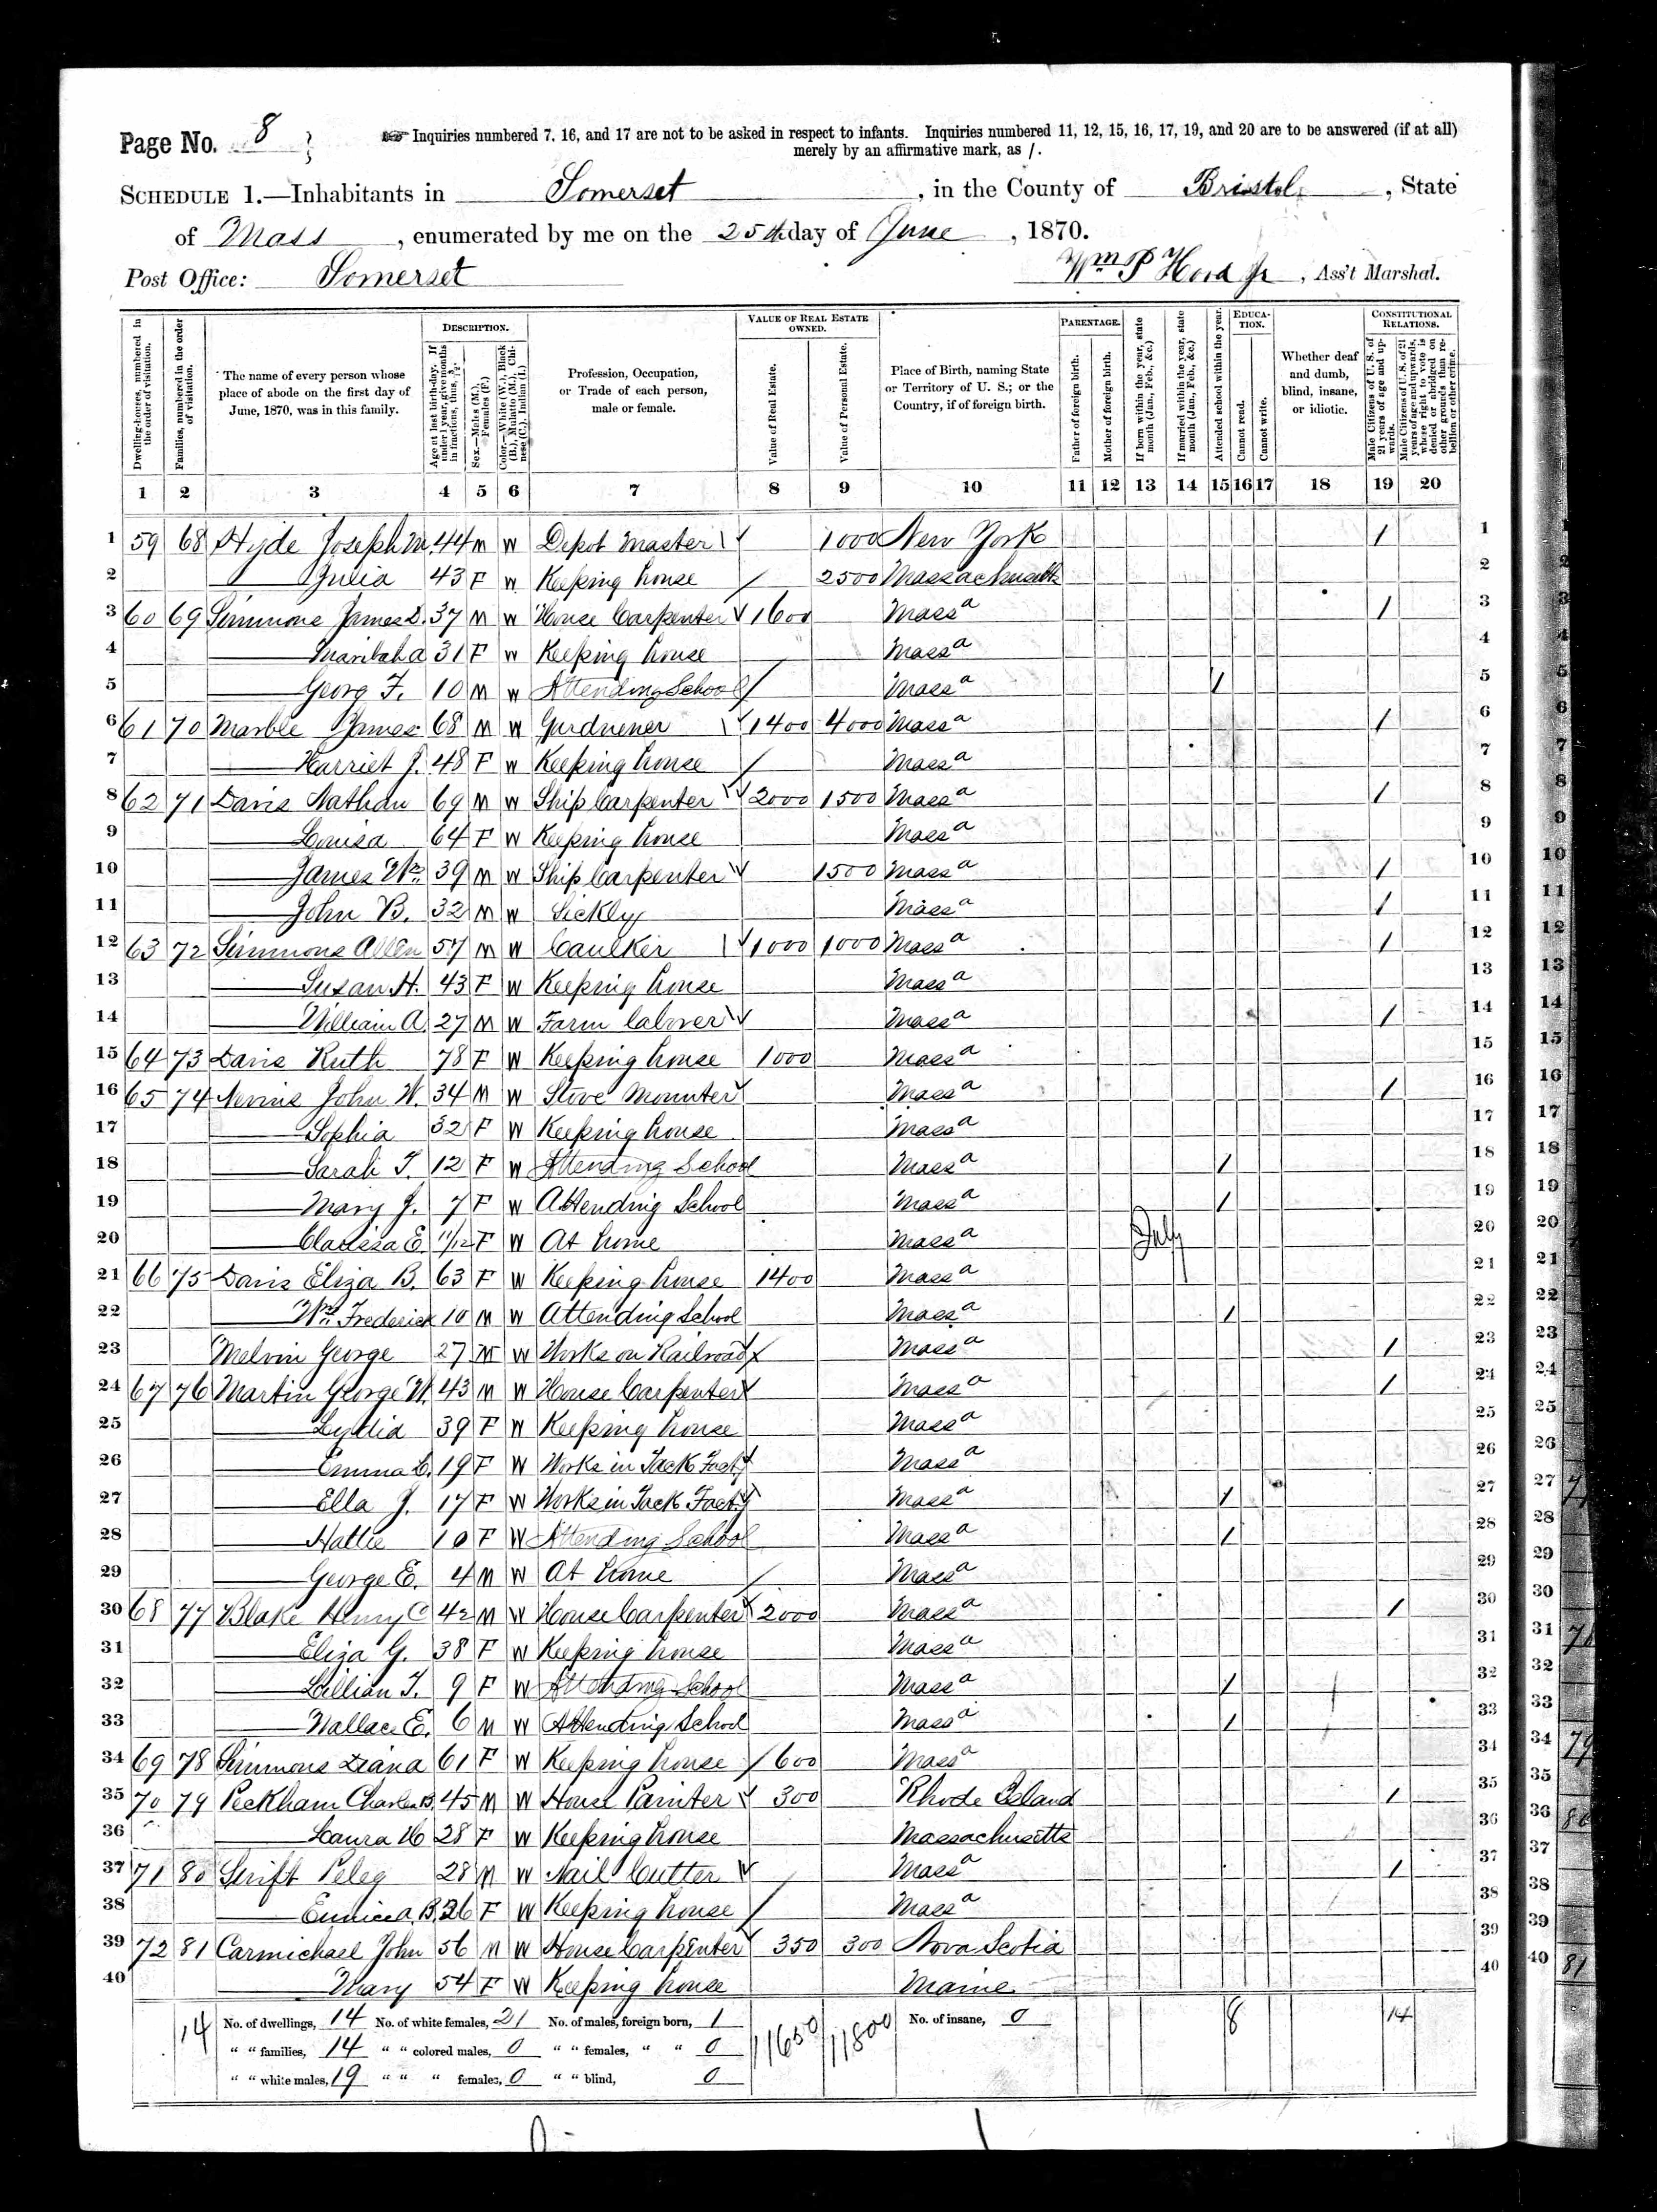 Page No. 8
Inquiries numbered 7, 16, and 17 are not to be asked in respect to infants. Inquiries numbered 11, 12, 15, 16, 17, 19, and 20 are to be answered (if at all)
merely by an affirmative mark, as /.
SCHEDULE 1.—Inhabitants in Somerset, in the County of Bristol, State
of Mass, enumerated by me on the 25th day of June, 1870.
Post Office: Somerset Wm P Hood Jr, Ass't Marshal.
Dwelling-houses, numbered in the order of visitation.
Families, numbered in the order of visitation.
The name of every person whose place of abode on the first day of June, 1870, was in this family.
DESCRIPTION.
Age at last birth-day. If under 1 year, give months in fractions, thus, 3/12.
Sex.—Males (M.), Females (F.)
Color.—White (W.), Black (B.), Mulatto (M.), Chinese (C.), Indian (I.)
Profession, Occupation, or Trade of each person, male or female.
VALUE OF REAL ESTATE OWNED.
Value of Real Estate.
Value of Personal Estate.
Place of Birth, naming State or Territory of U. S.; or the Country, if of foreign birth.
PARENTAGE.
Father of foreign birth.
Mother of foreign birth.
If born within the year, state month (Jan., Feb., &c.)
If married within the year, state month (Jan., Feb., &c.)
Attended school within the year.
EDUCATION.
Cannot read.
Cannot write.
Whether deaf and dumb, blind, insane, or idiotic.
CONSTITUTIONAL RELATIONS.
Male Citizens of U. S. of 21 years of age and upwards.
Male Citizens of U. S. of 21 years of age and upwards, whose right to vote is denied or abridged on other grounds than rebellion or other crime.
1 2 3 4 5 6 7 8 9 10 11 12 13 14 15 16 17 18 19 20
1 59 68 Hyde Joseph M. 44 M W Depot Master 1000 New York / 1
2 Julia 43 F W Keeping house 2500 Massachusetts 2
3 60 69 Simmons James D. 37 M W House Carpenter 1600 Massa / 3
4 31 F W Keeping house Massa 4
5 Georg F. 10 M W Attending School Massa / 5
6 61 70 Marble James 68 M W Gardnener 1400 4000 Massa / 6
7 Harriet J. 48 F W Keeping house Massa 7
8 62 71 Davis Nathan 69 M W Ship Carpenter 2000 1500 Massa / 8
9 Louisa 64 F W Keeping house Massa 9
10 James Wm. 39 M W Ship Carpenter 1500 Massa / 10
11 John B. 32 M W Sickly Massa / 11
12 63 72 Simmons Allen 57 M W Caulker 1000 1000 Massa / 12
13 Susan H. 43 F W Keeping house Massa 13
14 William A. 27 M W Farm laborer Massa / 14
15 64 73 Davis Ruth 78 F W Keeping house 1000 Massa 15
16 65 74 Nevins John W. 34 M W Stove Mounter Massa / 16
17 Sophia 32 F W Keeping house Massa 17
18 Sarah T. 12 F W Attending School Massa / 18
19 Mary J. 7 F W Attending School Massa / 19
20 Clarissa E. 11/12 F W At home Massa July 20
21 66 75 Davis Eliza B. 63 F W Keeping house 1400 Massa 21
22 Wm. Frederick 10 M W Attending School Massa / 22
23 Melvin George 27 M W Works on Railroad Massa / 23
24 67 76 Martin George W. 43 M W House Carpenter Massa / 24
25 Lydia 39 F W Keeping house Massa 25
26 Emma L. 19 F W Works in Tack Facty Massa 26
27 Ella J. 17 F W Works in Tack Facty Massa / 27
28 Hattie 10 F W Attending School Massa / 28
29 George E. 4 M W At home Massa 29
30 68 77 Blake Henry C 42 M W House Carpenter 2000 Massa / 30
31 Eliza G. 38 F W Keeping house Massa 31
32 Lillian T. 9 F W Attending School Massa / 32
33 Wallace E. 6 M W Attending School Massa / 33
34 69 78 Simmons Diana 61 F W Keeping house 600 Massa 34
35 70 79 Peckham Charles B. 45 M W House Painter 300 Rhode Island / 35
36 Laura 28 F W Keeping house Massachusetts 36
37 71 80 Peleg 28 M W Nail Cutter Massa / 37
38 Eunice A. B. 26 F W Keeping house Massa 38
39 72 81 Carmichael John 56 M W House Carpenter 350 300 Nova Scotia 39
40 Mary 54 F W Keeping house Maine 40
14 No. of dwellings, 14 No. of white females, 21 No. of males, foreign born, 1 11650 11800 No. of insane, 0 8 14
" " families, 14 " " colored males, 0 " " females, " " 0
" " white males, 19 " " " females, 0 " " blind, 0